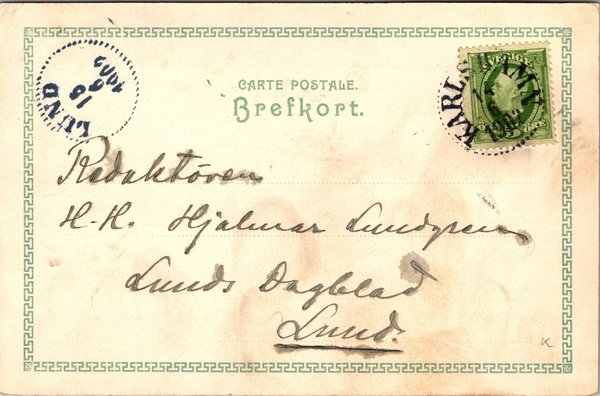 CARTE POSTALE.
Brefkort.
LUND
SVERIGE
Redaktören
H.H. Hjalmar Lundgren
Lunds Dagblad
Lund.
K